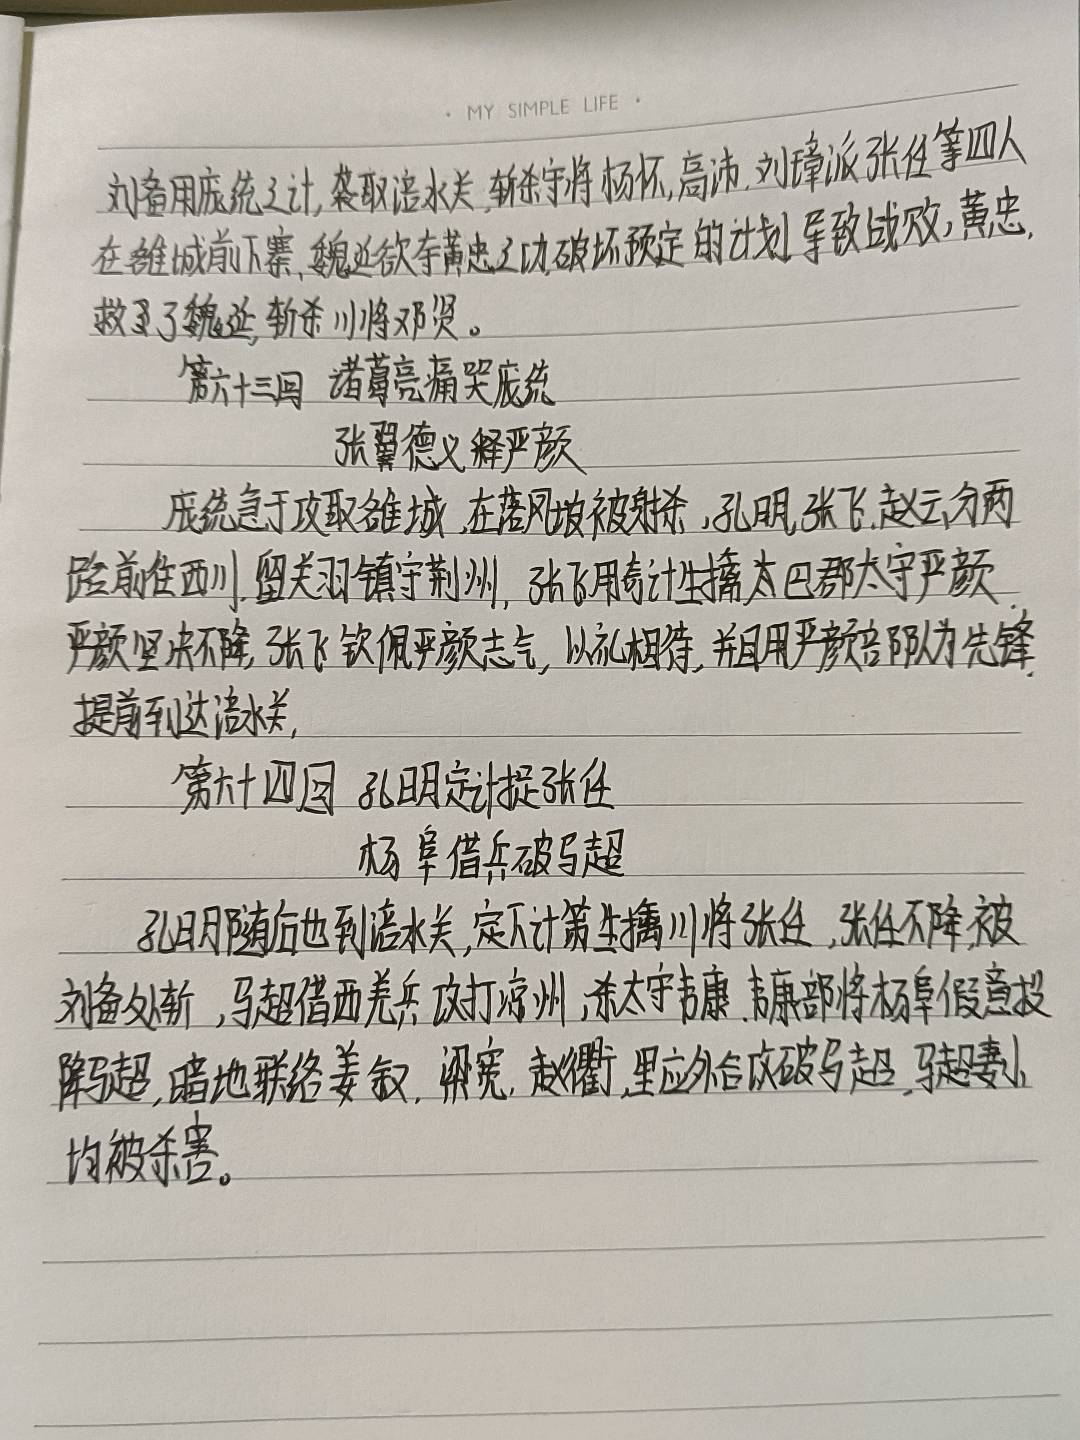 · MY SIMPLE LIFE ·
刘备用庞统之计,袭取涪水关,斩杀守将杨怀,高沛,刘璋派张任等四人
在雒城前下寨,魏延欲夺黄忠之功,破坏预定的计划,导致战败,黄忠,
救了魏延,斩杀川将邓贤。
第六十三回 诸葛亮痛哭庞统
张翼德义释严颜
庞统急于攻取雒城,在落凤坡被射杀,孔明,张飞,赵云,分两
路前住西川,留关羽镇守荆州,张飞用奇计生擒太巴郡太守严颜,
严颜坚决不降,张飞钦佩严颜志气,以礼相待,并且用严颜部队为先锋,
提前到达涪水关,
第六十四回 孔明定计捉张任
杨阜借兵破马超
孔明随后也到涪水关,定下计策生擒川将张任,张任不降,被
刘备处斩,马超借西羌兵攻打凉州,杀太守韦康,韦康部将杨阜假意投
降马超,暗地联络姜叙,梁宽,赵衢,里应外合攻破马超,马超妻小
均被杀害。